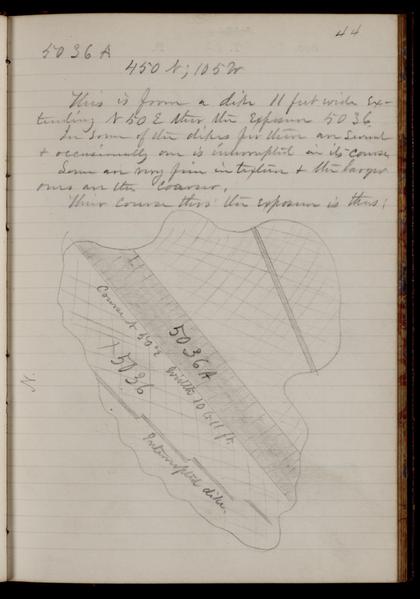 44
5036A
450 N; 105 W
This is from a dike 11 feet wide ex-
tending N 50 E thro the Exposure 5036
In some of the dikes for there are several
& occasionally one is interrupted in its course
Some are very fine in texture & the larger
ones are the coarser.
Their course thro' the exposure is thus:
5036A
Width 10 to 11 ft.
Course N 50° E
+5036
N.
Interrupted dike.